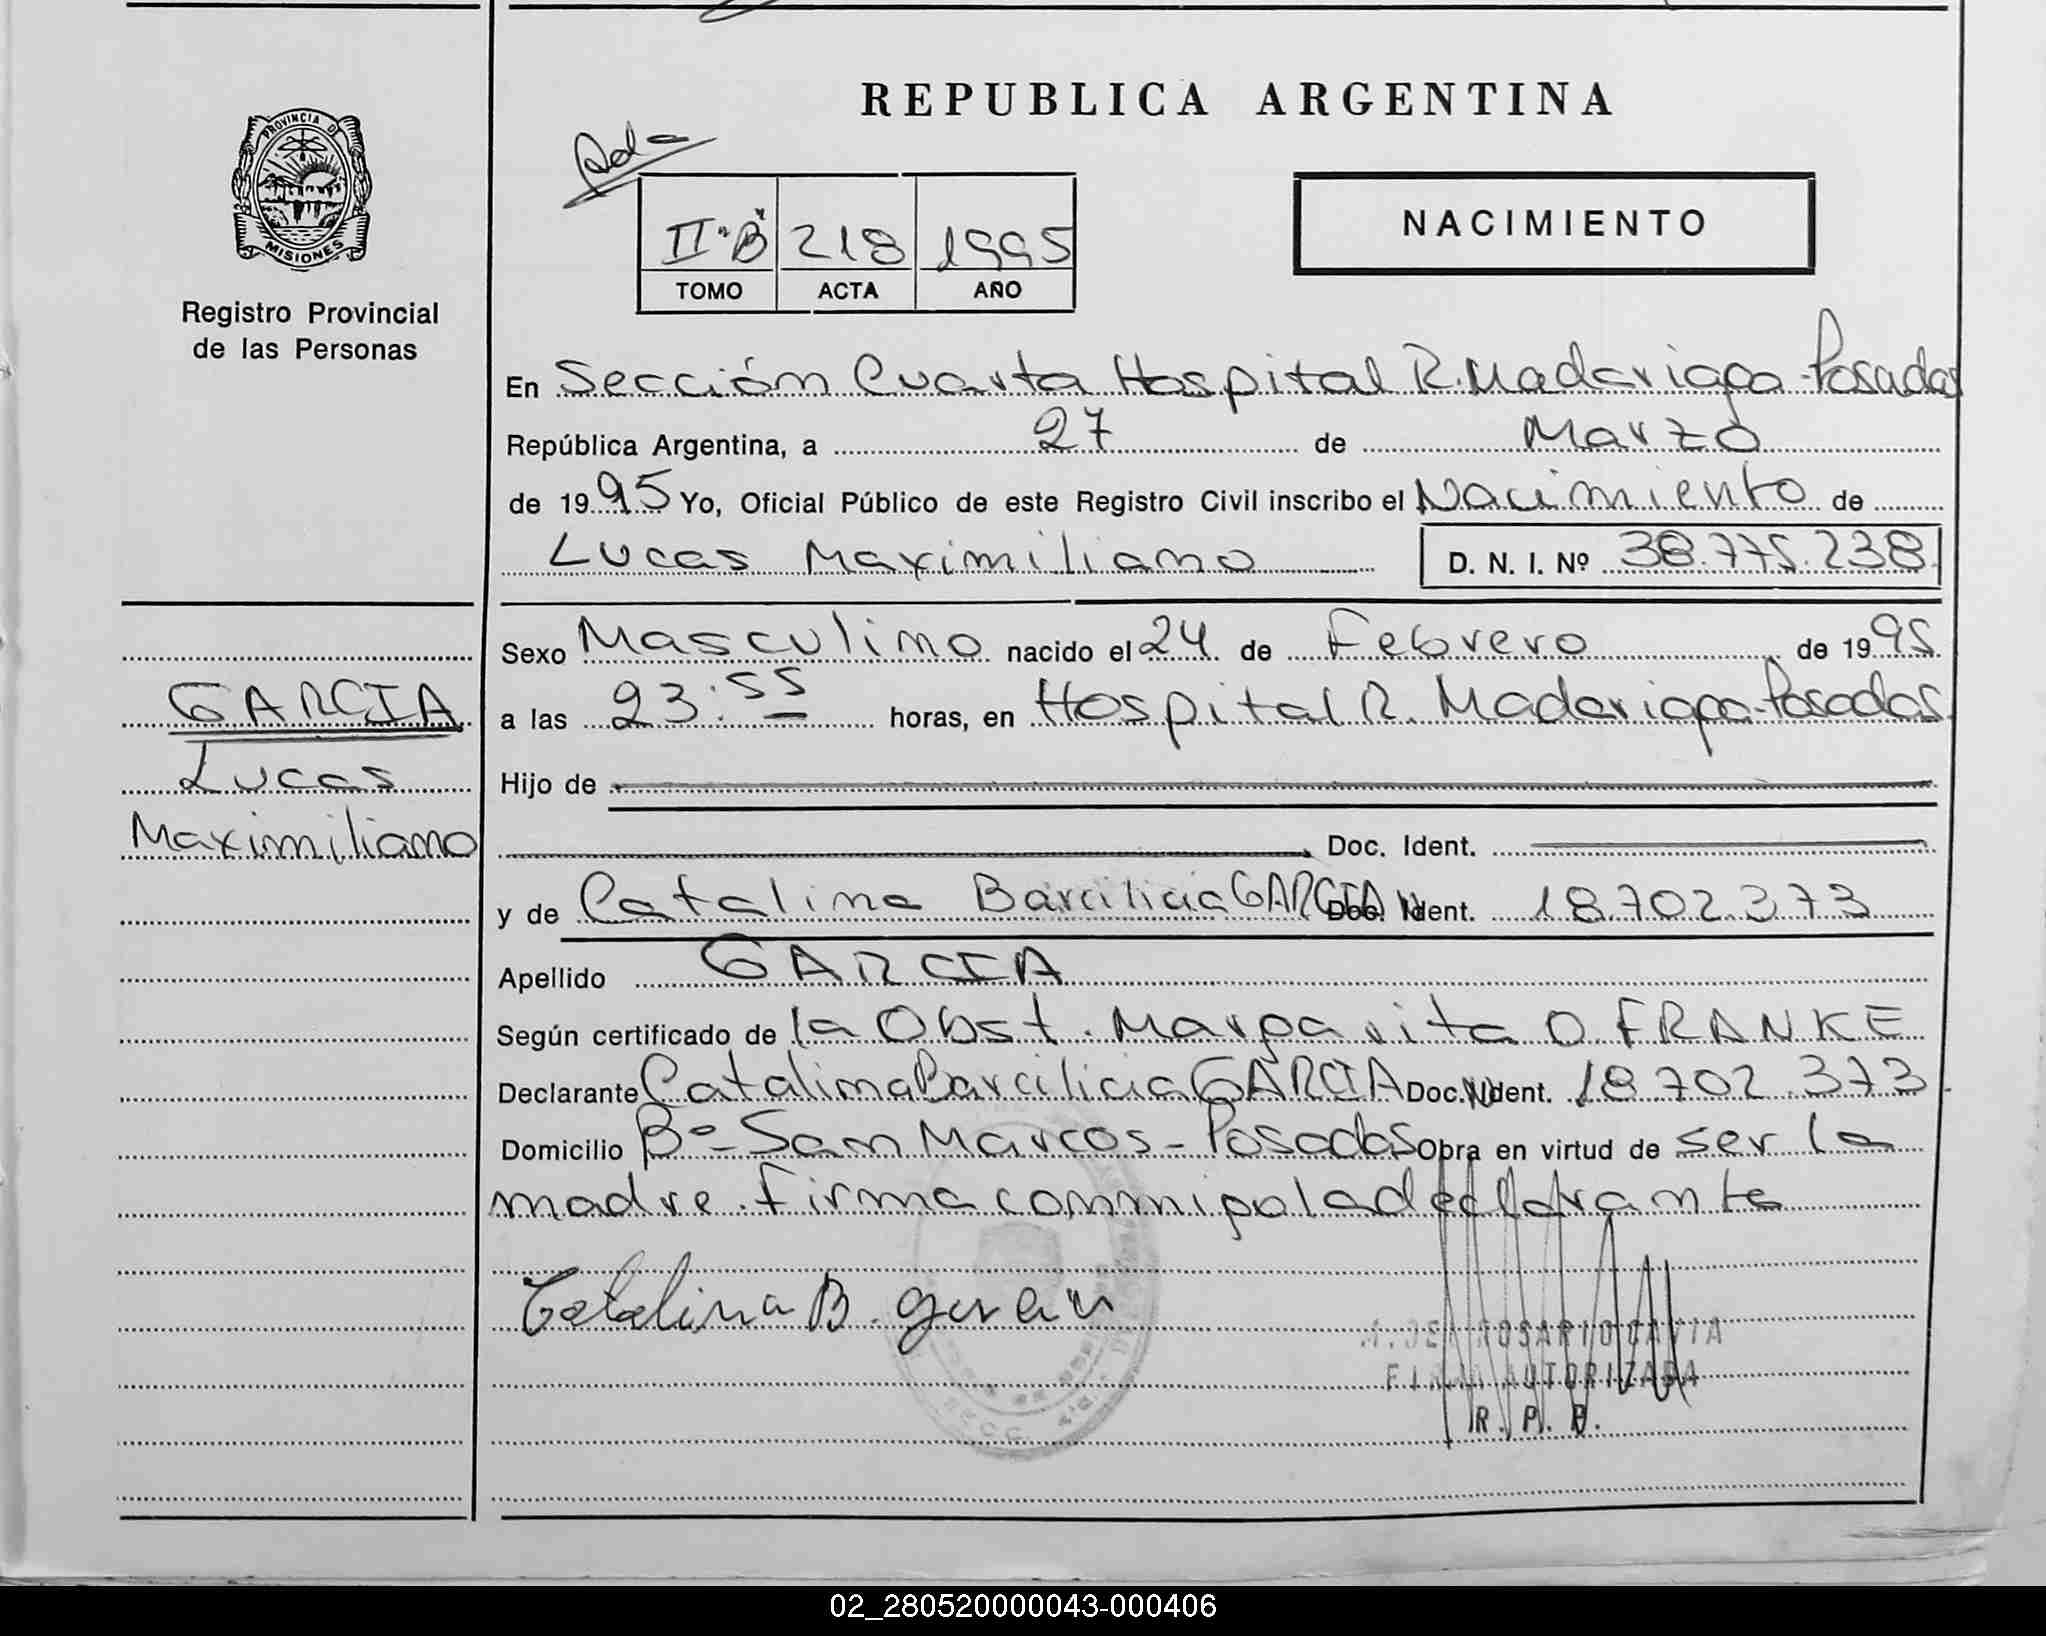 REPUBLICA ARGENTINA
PROVINCIA DE
MISIONES
Registro Provincial
de las Personas
IIº"B" 218 1995
TOMO ACTA AÑO
NACIMIENTO
En Sección Cuarta Hospital R. Madariaga - Posadas
República Argentina, a 27 de Marzo
de 1995 Yo, Oficial Público de este Registro Civil inscribo el Nacimiento de
Lucas Maximiliano D. N. I. Nº 38.775.238
Sexo Masculino nacido el 24 de Febrero de 1995
a las 23:55 horas, en Hospital R. Madariaga - Posadas
Hijo de
Doc. Ident.
y de Catalina Barcilicia GARCIA Doc. Ident. 18.702.373
Apellido GARCIA
Según certificado de la Obst. Margarita O. FRANKE
Declarante Catalina Barcilicia GARCIA Doc. Ident. 18.702.373
Domicilio Bº - San Marcos - Posadas Obra en virtud de ser la
madre. Firma conmigo la declarante
GARCIA
Lucas
Maximiliano
Catalina B.
ROSARIO
FIRMA AUTORIZADA
R. P. P.
02_280520000043-000406